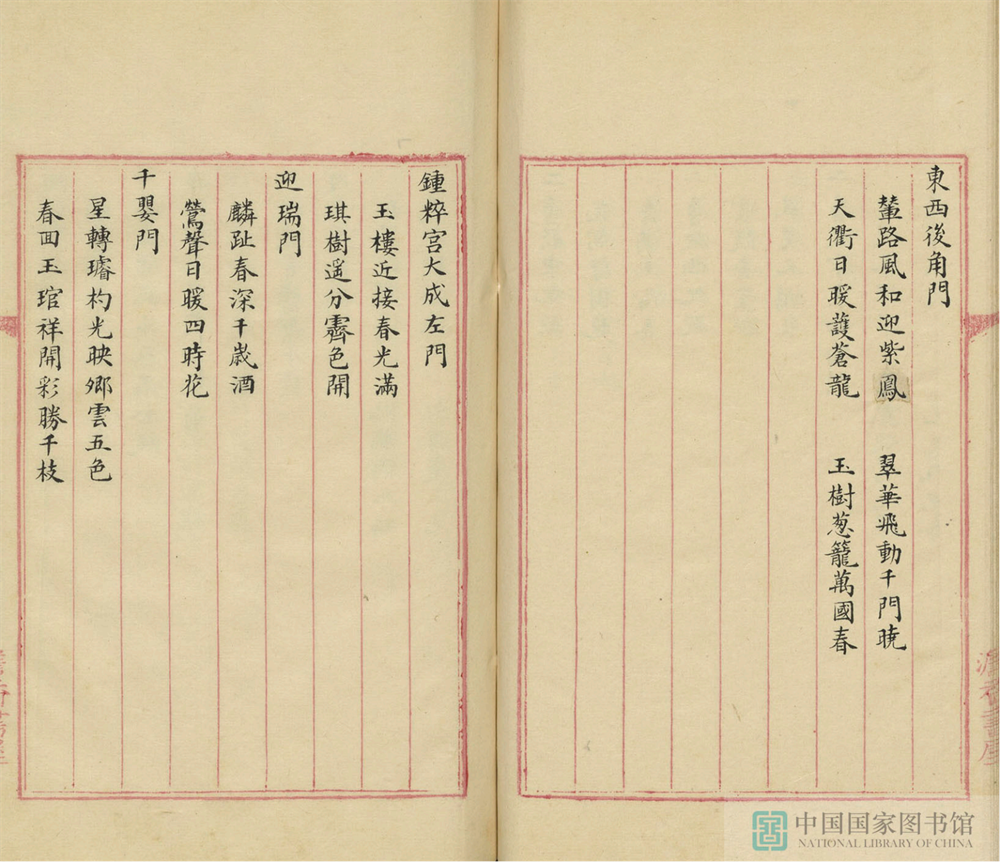 東西後角門
輦路風和迎紫鳳 翠華飛動千門暁
天衢日暖護蒼龍 玉樹葱籠萬國春
鍾粹宮大成左門
玉樓近接春光滿
琪樹遥分霽色開
迎瑞門
麟趾春深千歳酒
鶯聲日暖四時花
千嬰門
星轉璿杓光映卿雲五色
春回玉琯祥開彩勝千枝
中国国家图书馆
NATIONAL LIBRARY OF CHINA